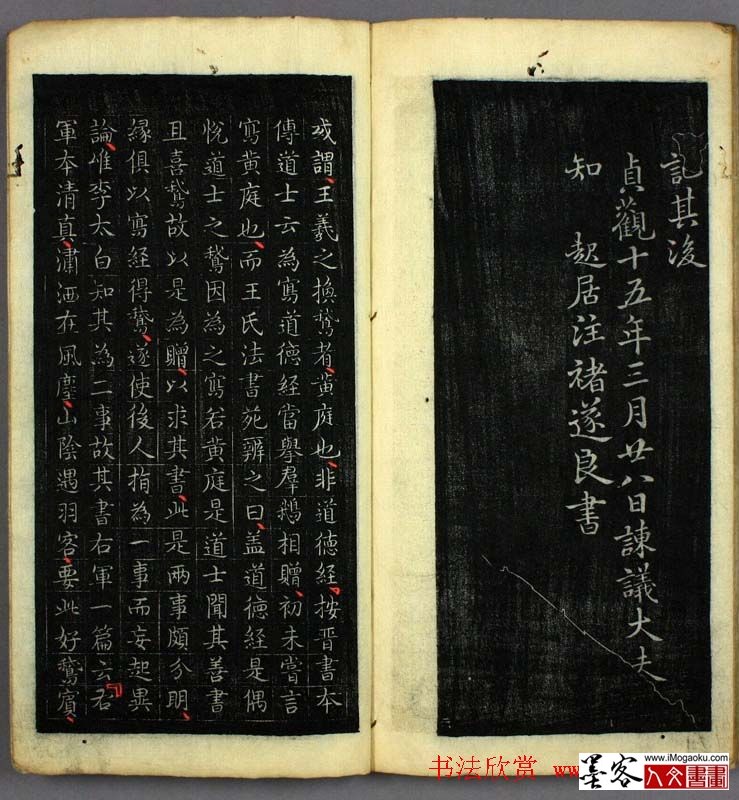 記其後
貞觀十五年三月廿八日諫議大夫
知 起居注褚遂良書
或謂王羲之換鵞者黃庭也非道德經按晉書本
傳道士云為寫道德經當舉羣鵝相贈初未嘗言
寫黃庭也而王氏法書苑辨之曰盖道德經是偶
悅道士之鵞因為之寫若黃庭是道士聞其善書
且喜鵞故以是為贈以求其書此是兩事頗分明
縁俱以寫經得鵞遂使後人指為一事而妄起異
論唯李太白知其為二事故其書右軍一篇云右
軍本清真瀟洒在風塵山陰遇羽客要此好鵞賓
书法欣赏 www
墨客
www.iMogaoku.com
人文書畫